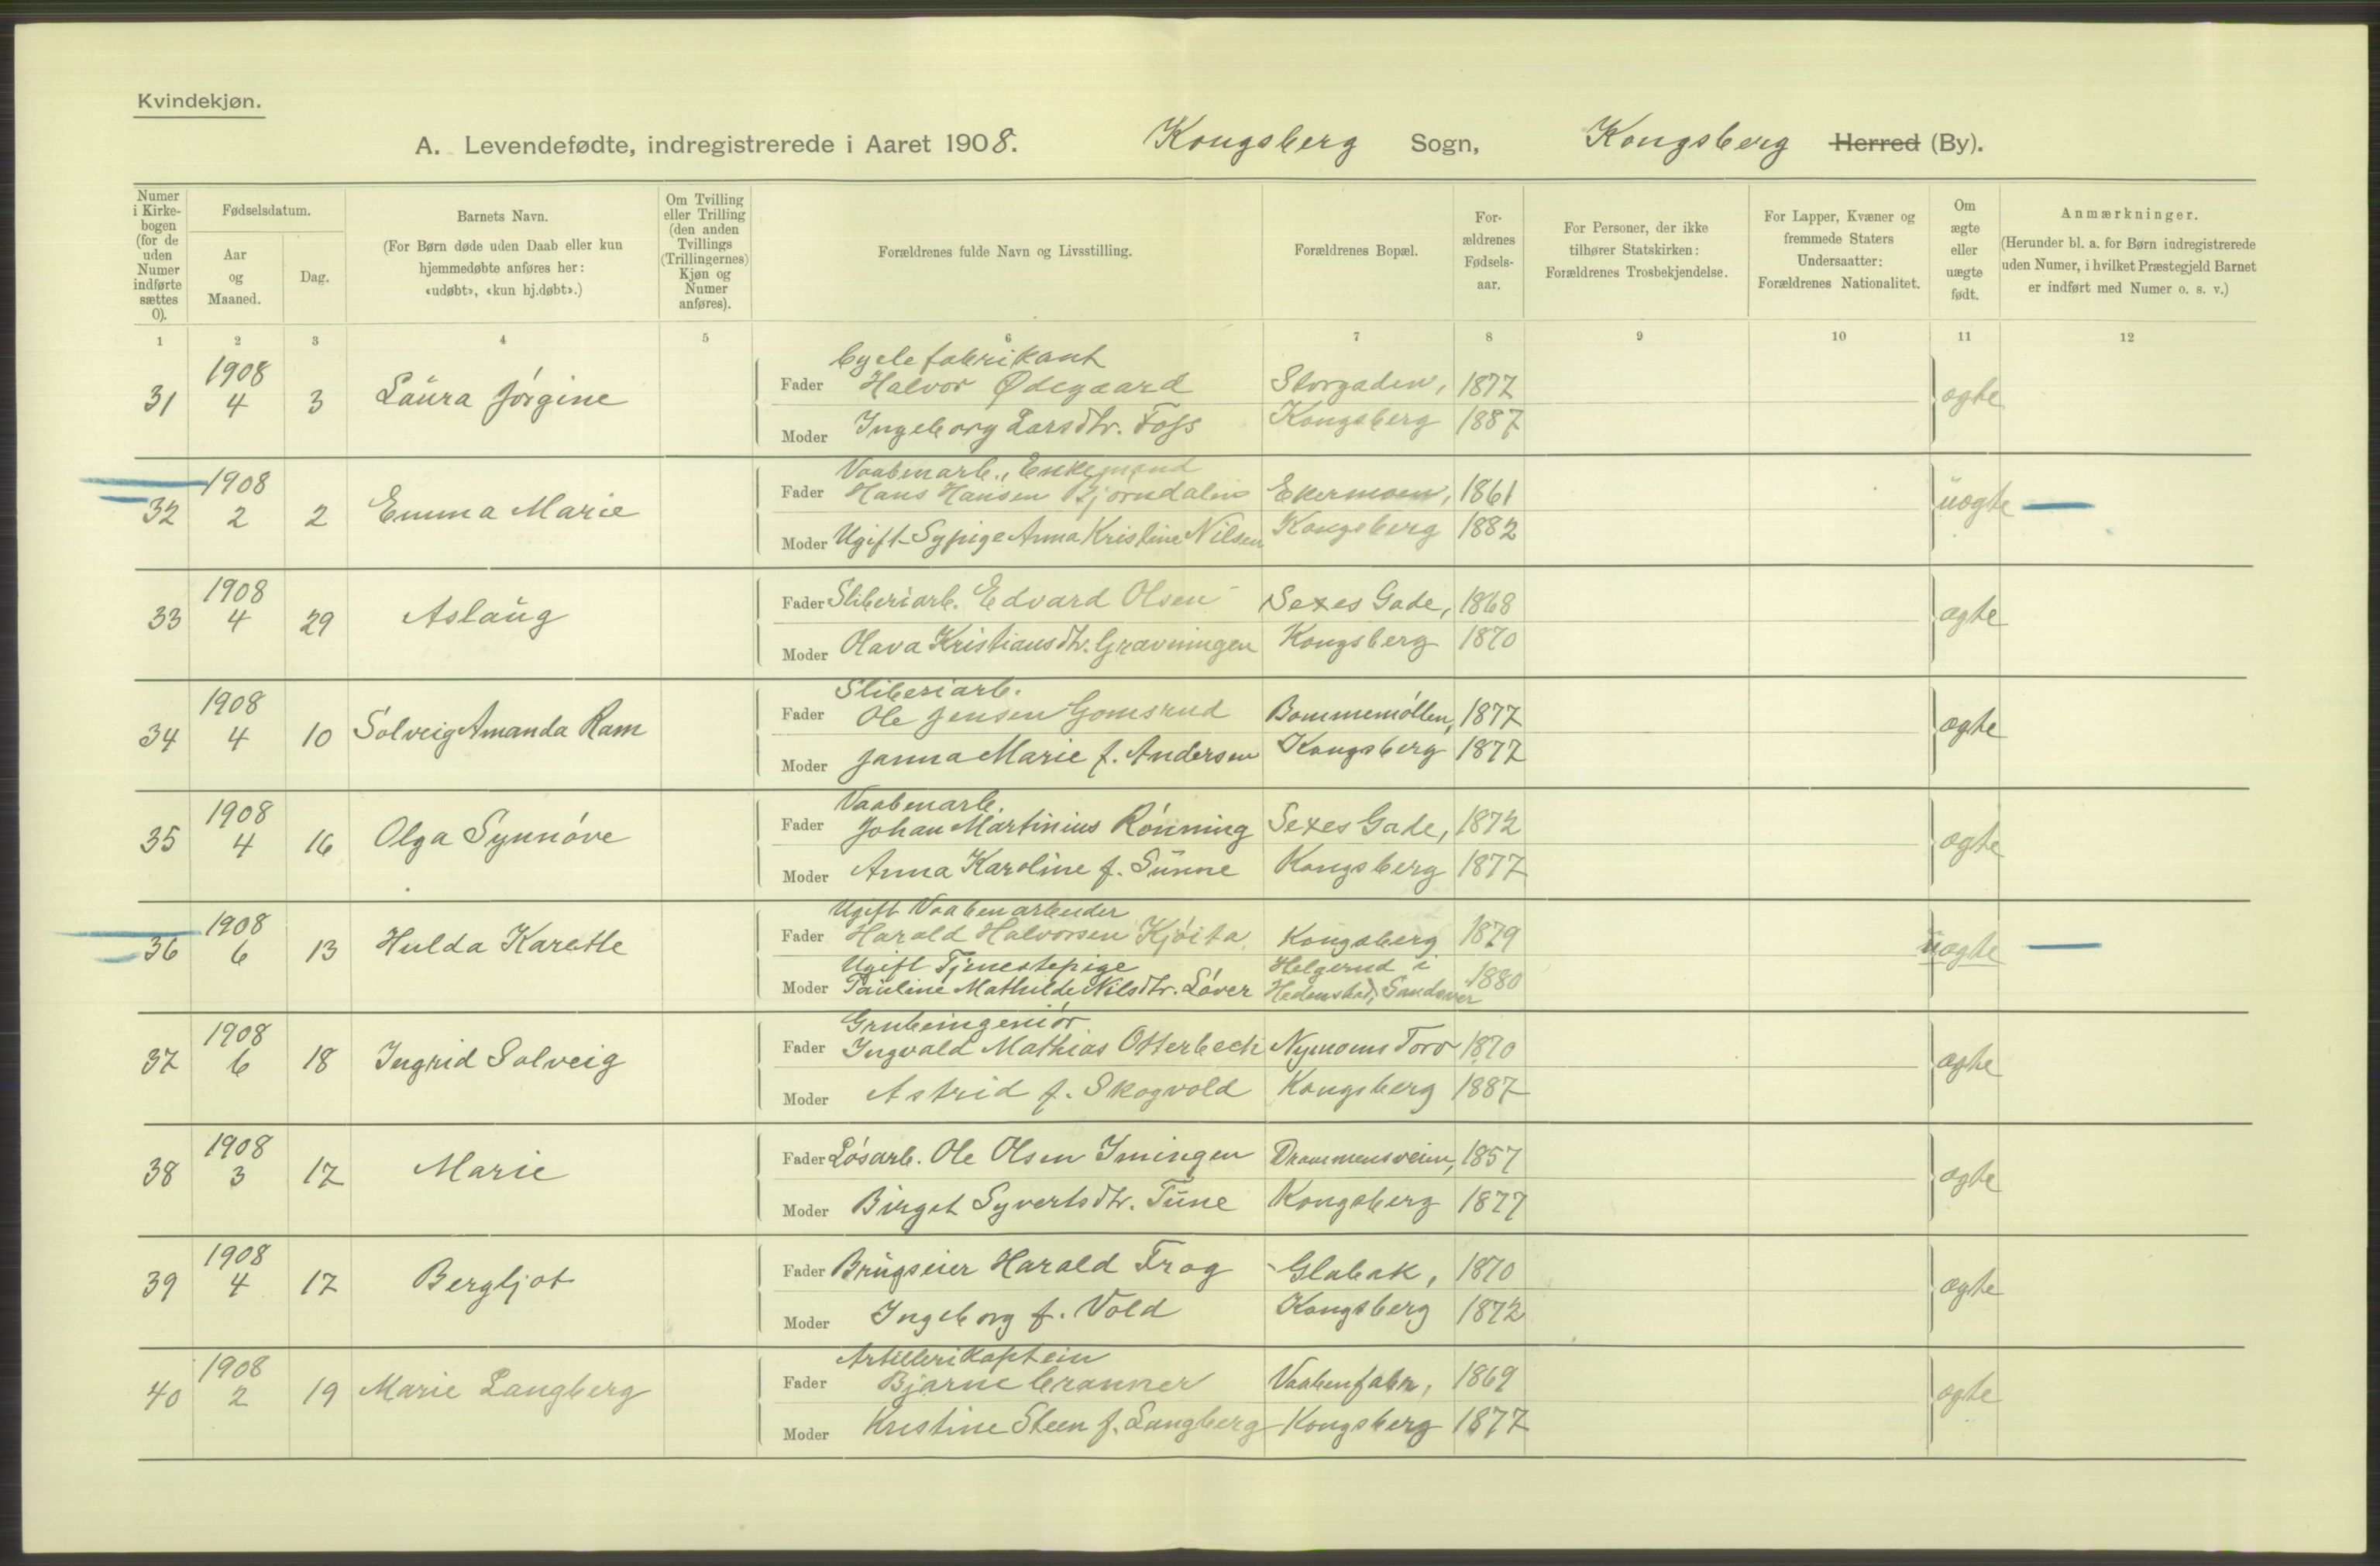 Kvindekjøn.
A. Levendefødte, indregistrerede i Aaret 1908. Kongsberg Sogn, Kongsberg Herred (By).
Numer i Kirke-bogen (for de uden Numer indførte sættes 0).
Fødselsdatum.
Aar og Maaned.
Dag.
Barnets Navn.
(For Børn døde uden Daab eller kun hjemmedøbte anføres her: «udøbt», «kun hj.døbt».)
Om Tvilling eller Trilling (den anden Tvillings (Trillingernes) Kjøn og Numer anføres).
Forældrenes fulde Navn og Livsstilling.
Forældrenes Bopæl.
For-ældrenes Fødsels-aar.
For Personer, der ikke tilhører Statskirken: Forældrenes Trosbekjendelse.
For Lapper, Kvæner og fremmede Staters Undersaatter: Forældrenes Nationalitet.
Om ægte eller uægte født.
Anmærkninger.
(Herunder bl. a. for Børn indregistrerede uden Numer, i hvilket Præstegjeld Barnet er indført med Numer o. s. v.)
1 2 3 4 5 6 7 8 9 10 11 12
31 1908 4 3 Laura Jörgine
Cyclefabrikant
Fader Halvor Ødegaard Storgaden, 1877 ægte
Moder Ingeborg Larsdtr. Foss Kongsberg 1887
32 1908 2 2 Emma Marie
Vaabenarb., Enkemand
Fader Hans Hansen Bjørndalen Ekermoen, 1861 uægte
Moder Ugift Sypige Anna Kristine Nilsen Kongsberg 1882
33 1908 4 29 Aslaug
Fader Sliberiarb. Edvard Olsen Sexes Gade, 1868 ægte
Moder Olava Kristiansdtr. Gravningen Kongsberg 1870
34 1908 4 10 Solveig Amanda Ram
Sliberiarb.
Fader Ole Jensen Gomsrud Bommemöllen, 1877 ægte
Moder Janna Marie f. Andersen Kongsberg 1877
35 1908 4 16 Olga Synnöve
Vaabenarb.
Fader Johan Martinius Rönning Sexes Gade, 1872 ægte
Moder Anna Karoline f. Sunne Kongsberg 1877
36 1908 6 13 Hulda Karette
Ugift Vaabenarbeider
Fader Harald Halvorsen Kjöita Kongsberg 1879 uægte
Ugift Tjenestepige Helgerud i
Moder Pauline Mathilde Nilsdtr. Löver Hedenstad, Sandsver 1880
37 1908 6 18 Ingrid Solveig
Grubeingeniör
Fader Ingvald Mathias Otterbech Nymoens Torv 1870 ægte
Moder Astrid f. Skogvold Kongsberg 1887
38 1908 3 17 Marie
Fader Lösarb. Ole Olsen Imingen Drammensveien, 1857 ægte
Moder Birget Syvertsdtr. Tune Kongsberg 1877
39 1908 4 17 Bergljot
Fader Brugseier Harald Frog Glabak, 1870 ægte
Moder Ingeborg f. Vold Kongsberg 1872
40 1908 2 19 Marie Langberg
Artillerikaptein
Fader Bjarne Cranner Vaabenfabr, 1869 ægte
Moder Kristine Steen f. Langberg Kongsberg 1877